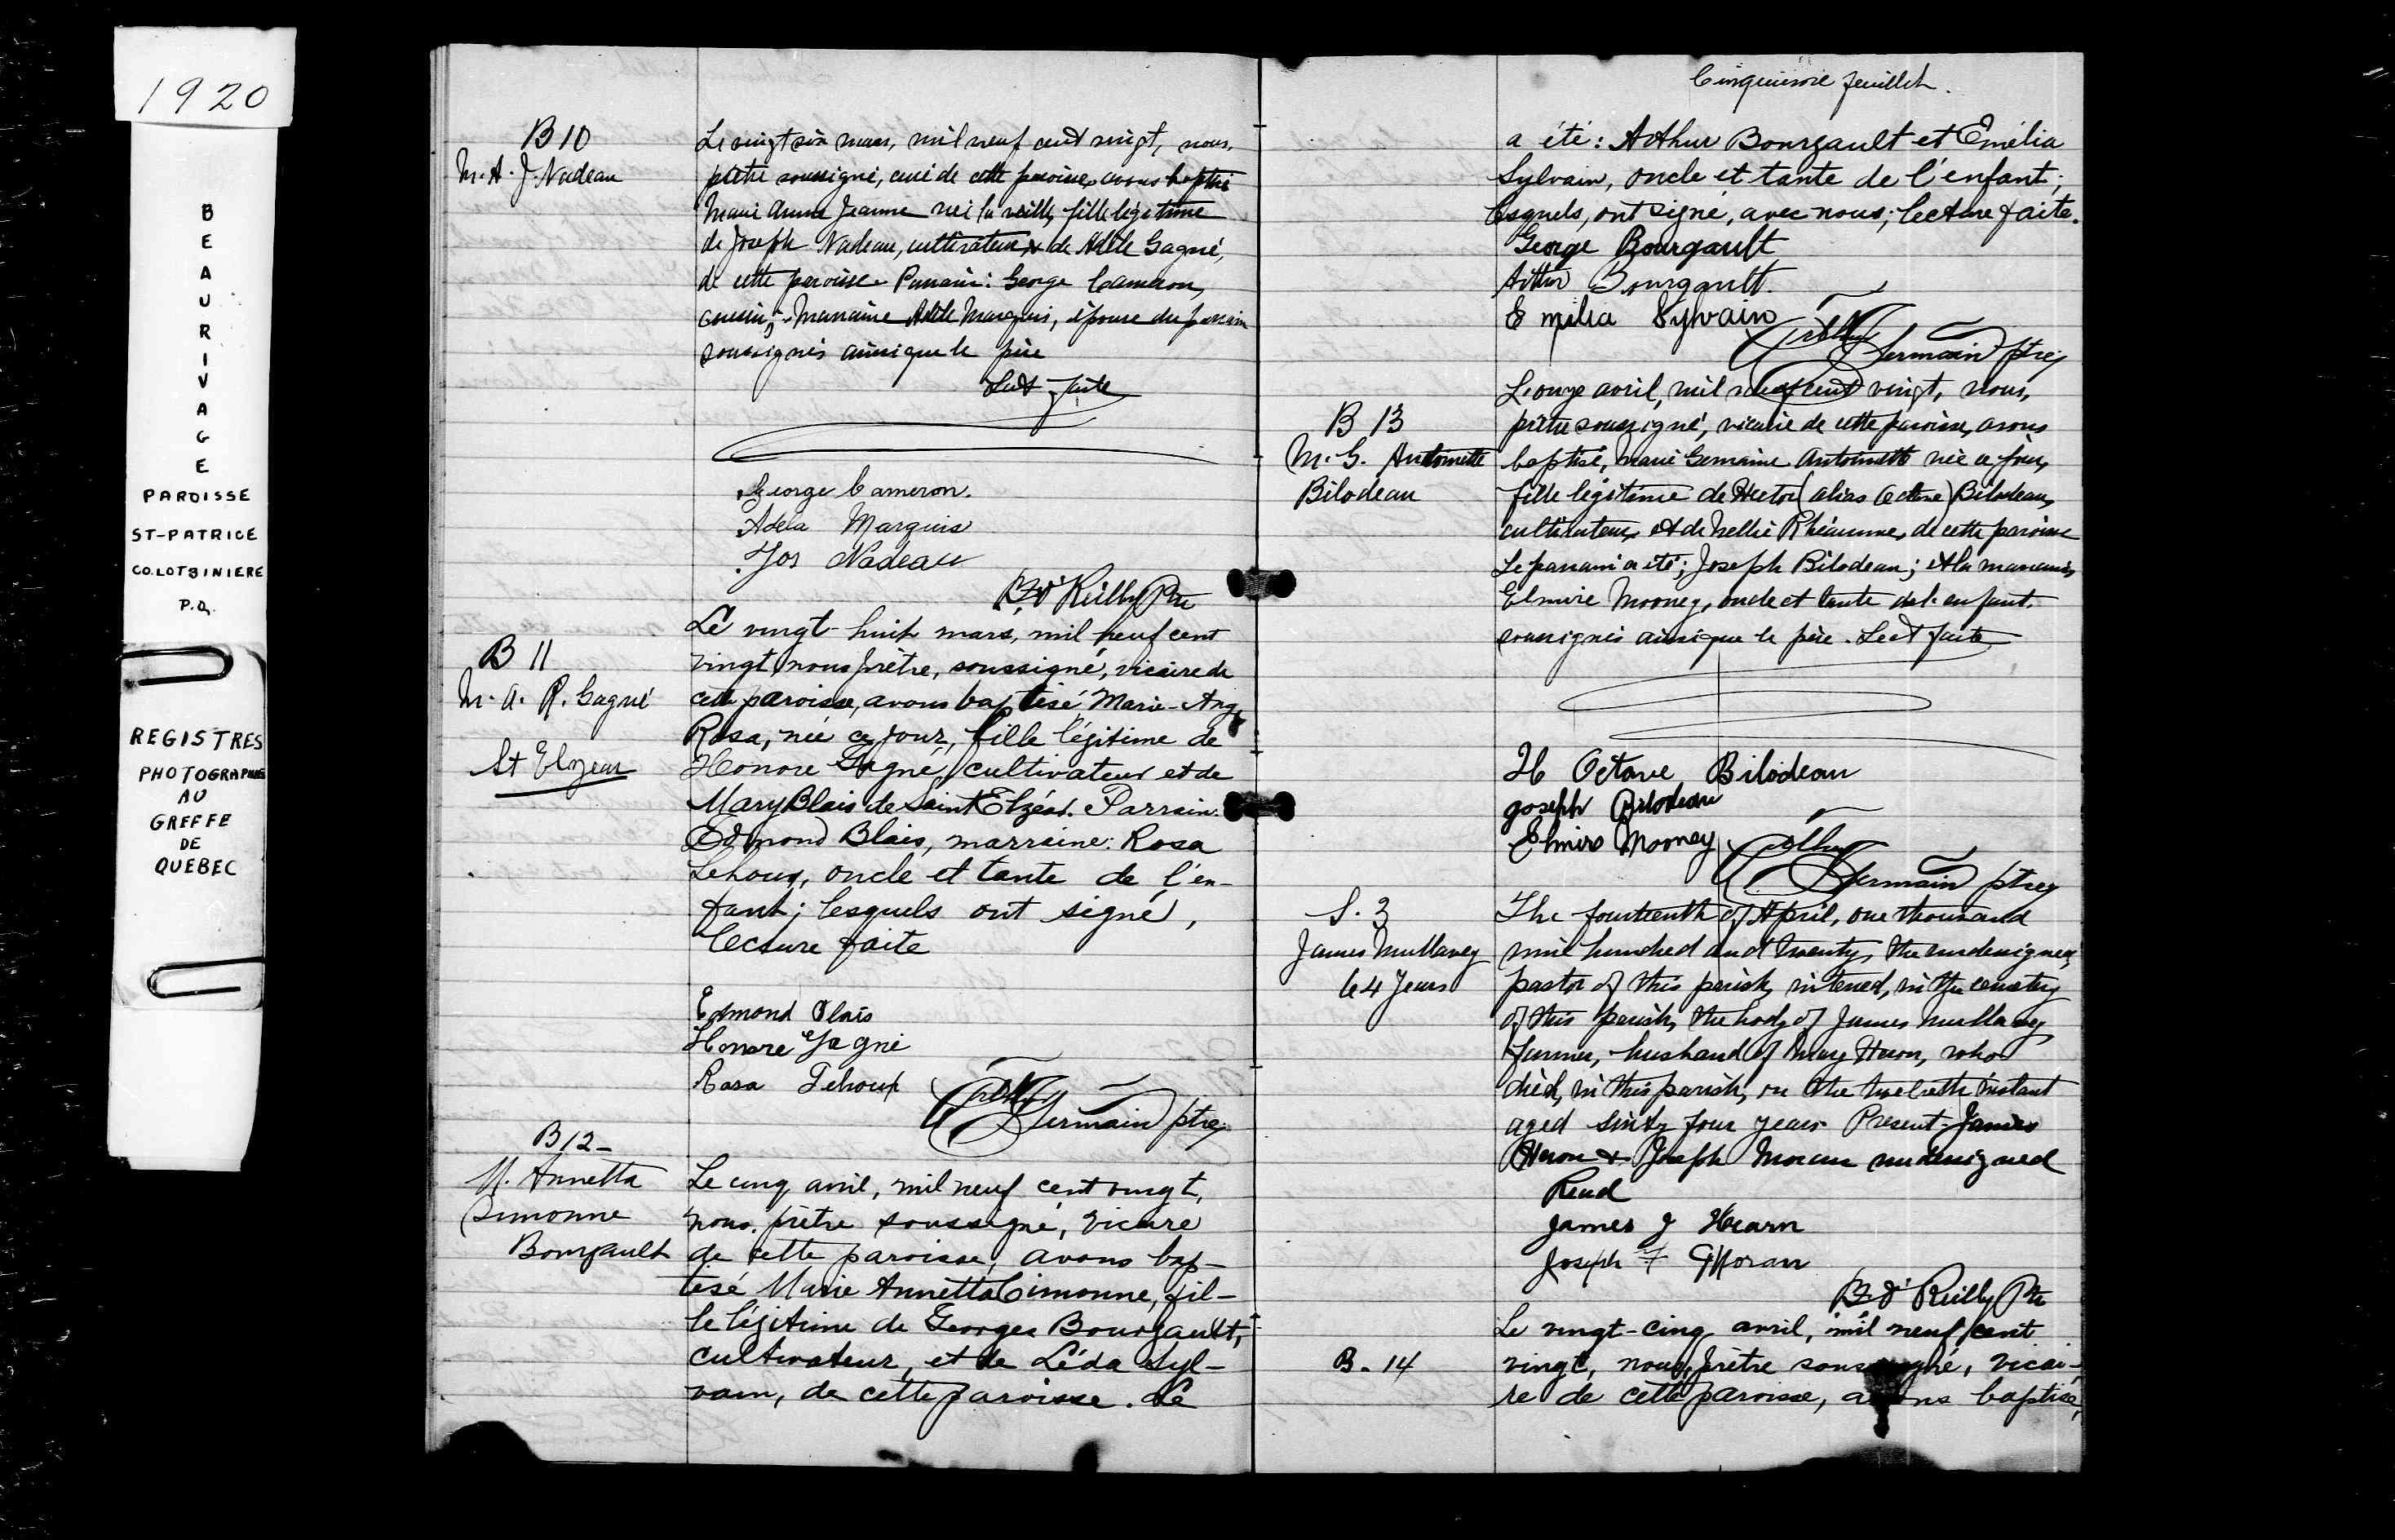 1920
BEAURIVAGE
PAROISSE
ST-PATRICE
CO. LOTBINIERE
P.Q.
REGISTRES
PHOTOGRAPHIÉS
AU
GREFFE
DE
QUEBEC
B 10
M. A. J. Nadeau
Le vingt six mars, mil neuf cent vingt, nous,
prêtre soussigné, curé de cette paroisse, avons baptisé
Marie Anna Jeanne née la veille, fille légitime
de Joseph Nadeau, cultivateur, & de Adèle Gagné,
de cette paroisse. Parrain: George Cameron,
cousin; Marraine Adèle Marquis, épouse du parrain
soussignés ainsi que le père
Lect faite
George Cameron.
Adela Marquis
Jos Nadeau
Reilly Ptre
B 11
M. A. R. Gagné
St Elzear
Le vingt-huit mars, mil neuf cent
vingt, nous prêtre, soussigné, vicaire de
cette paroisse, avons baptisé Marie-Ange
Rosa, née ce jour, fille légitime de
Honoré Gagné, cultivateur et de
Mary Blais de Saint Elzéar. Parrain:
Edmond Blais, marraine: Rosa
Lehoux, oncle et tante de l'en-
fant; lesquels ont signé,
lecture faite
Edmond Blais
Honore Gagné
Rosa Lehoux
Germain ptre
B 12 -
M. Annetta
Simonne
Bourgault
Le cinq avril, mil neuf cent vingt,
nous, prêtre soussigné, vicaire
de cette paroisse, avons bap-
tisé Marie Annetta Cimonne, fil-
le légitime de Georges Bourgault,
cultivateur, et de Léda Syl-
vain, de cette paroisse. Le
Cinquième feuillet.
a été: Arthur Bourgault et Emélia
Sylvain, oncle et tante de l'enfant;
lesquels, ont signé, avec nous; lecture faite.
George Bourgault
Arthur Bourgault.
Emilia Sylvain
Germain ptre
B 13
M. G. Antoinette
Bilodeau
Le onze avril, mil neuf cent vingt, nous,
prêtre soussigné, vicaire de cette paroisse, avons
baptisé, Marie Germaine Antoinette née ce jour,
fille légitime de Hector (alias Octave) Bilodeau,
cultivateur, et de Nellie Rhéaume, de cette paroisse
Le parrain a été; Joseph Bilodeau; et la marraine,
Elmire Mooney, oncle et tante de l'enfant.
soussignés ainsi que le père. Lect faite
H Octave Bilodeau
Joseph Bilodeau
Elmire Mooney
Germain ptre
S. 3
James Mullavey
64 Years
The fourteenth of April, one thousand
nine hundred and twenty, the undersigned,
pastor of this parish, interred, in the cemetery
of this parish, the body of James Mullavey
farmer, husband of Mary Heron, who
died, in this parish, on the twelveth instant
aged sixty four years Present- James
Heron & Joseph Moran undersigned
Read
James J Hearn
Joseph F Moran
Reilly Ptre
B. 14
Le vingt-cinq avril, mil neuf cent
vingt, nous, prêtre soussigné, vicai-
re de cette paroisse, avons baptisé,